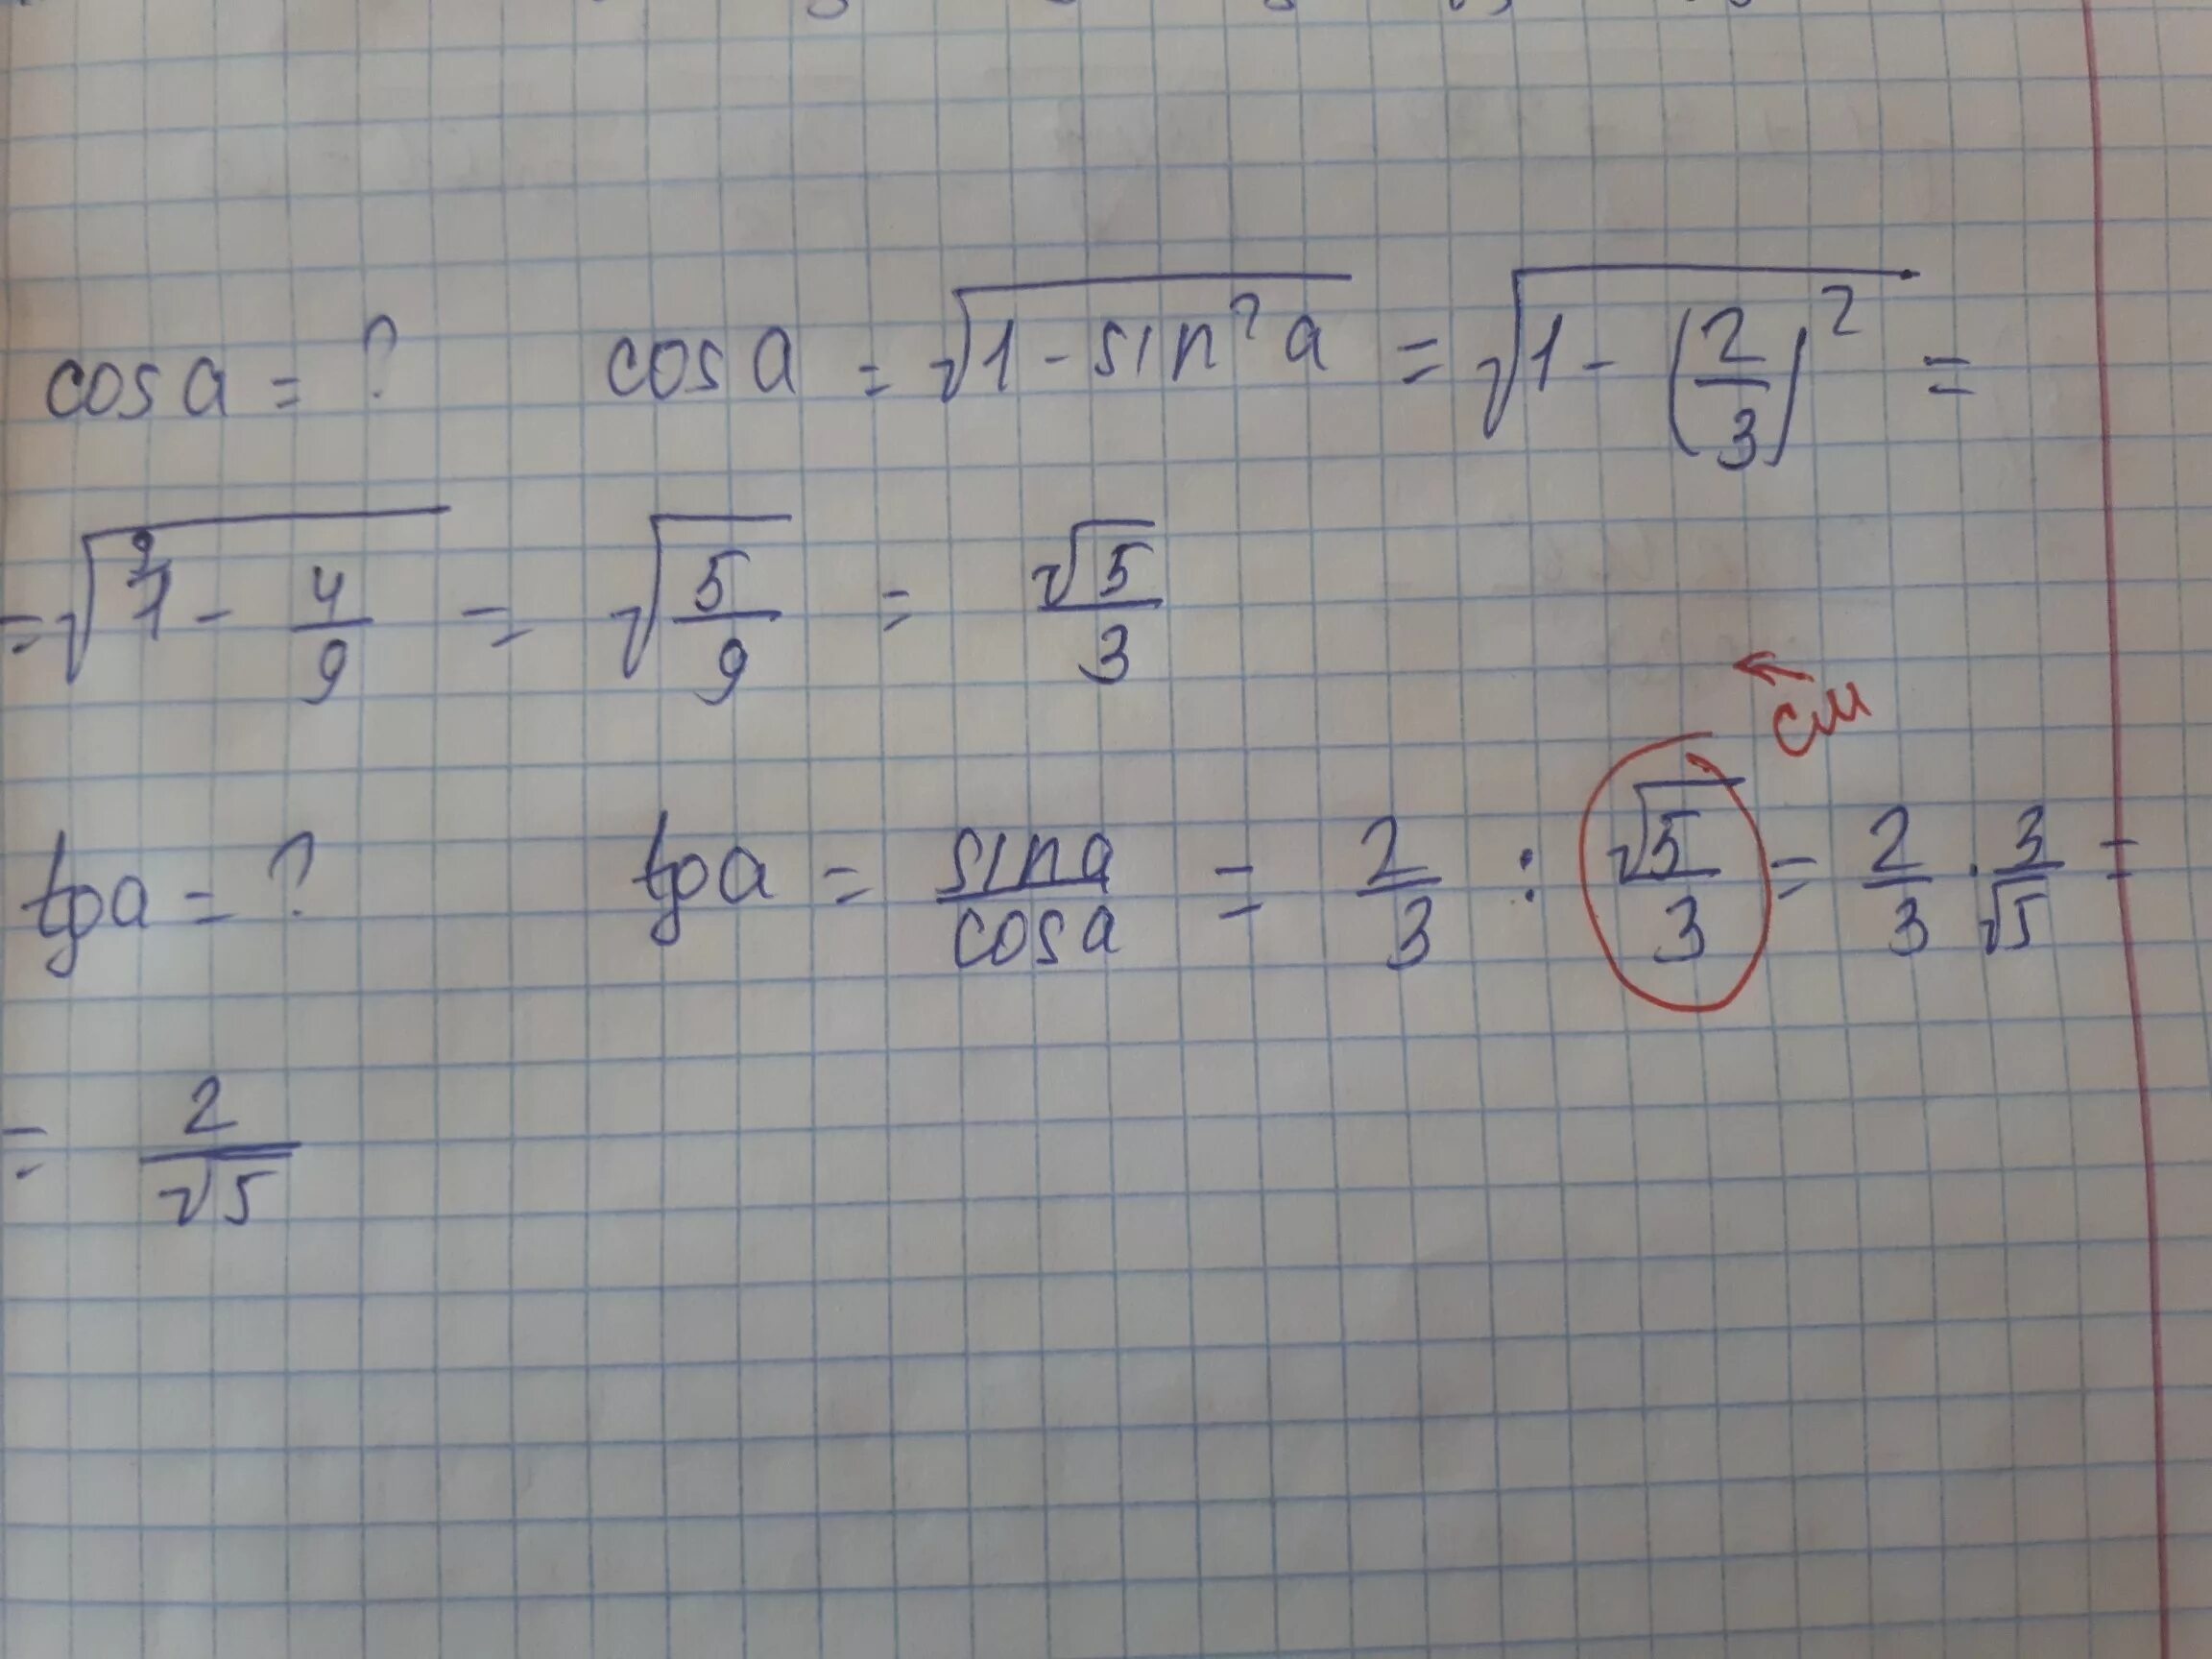 cos a = ? cos a = √(1 - sin² a) = √(1 - (2/3)²) =
= √(⁹1 - 4/9) = √(5/9) = √5/3
← см
tg a = ? tg a = sin a/cos a = 2/3 : √5/3 = 2/3 · 3/√5 =
= 2/√5